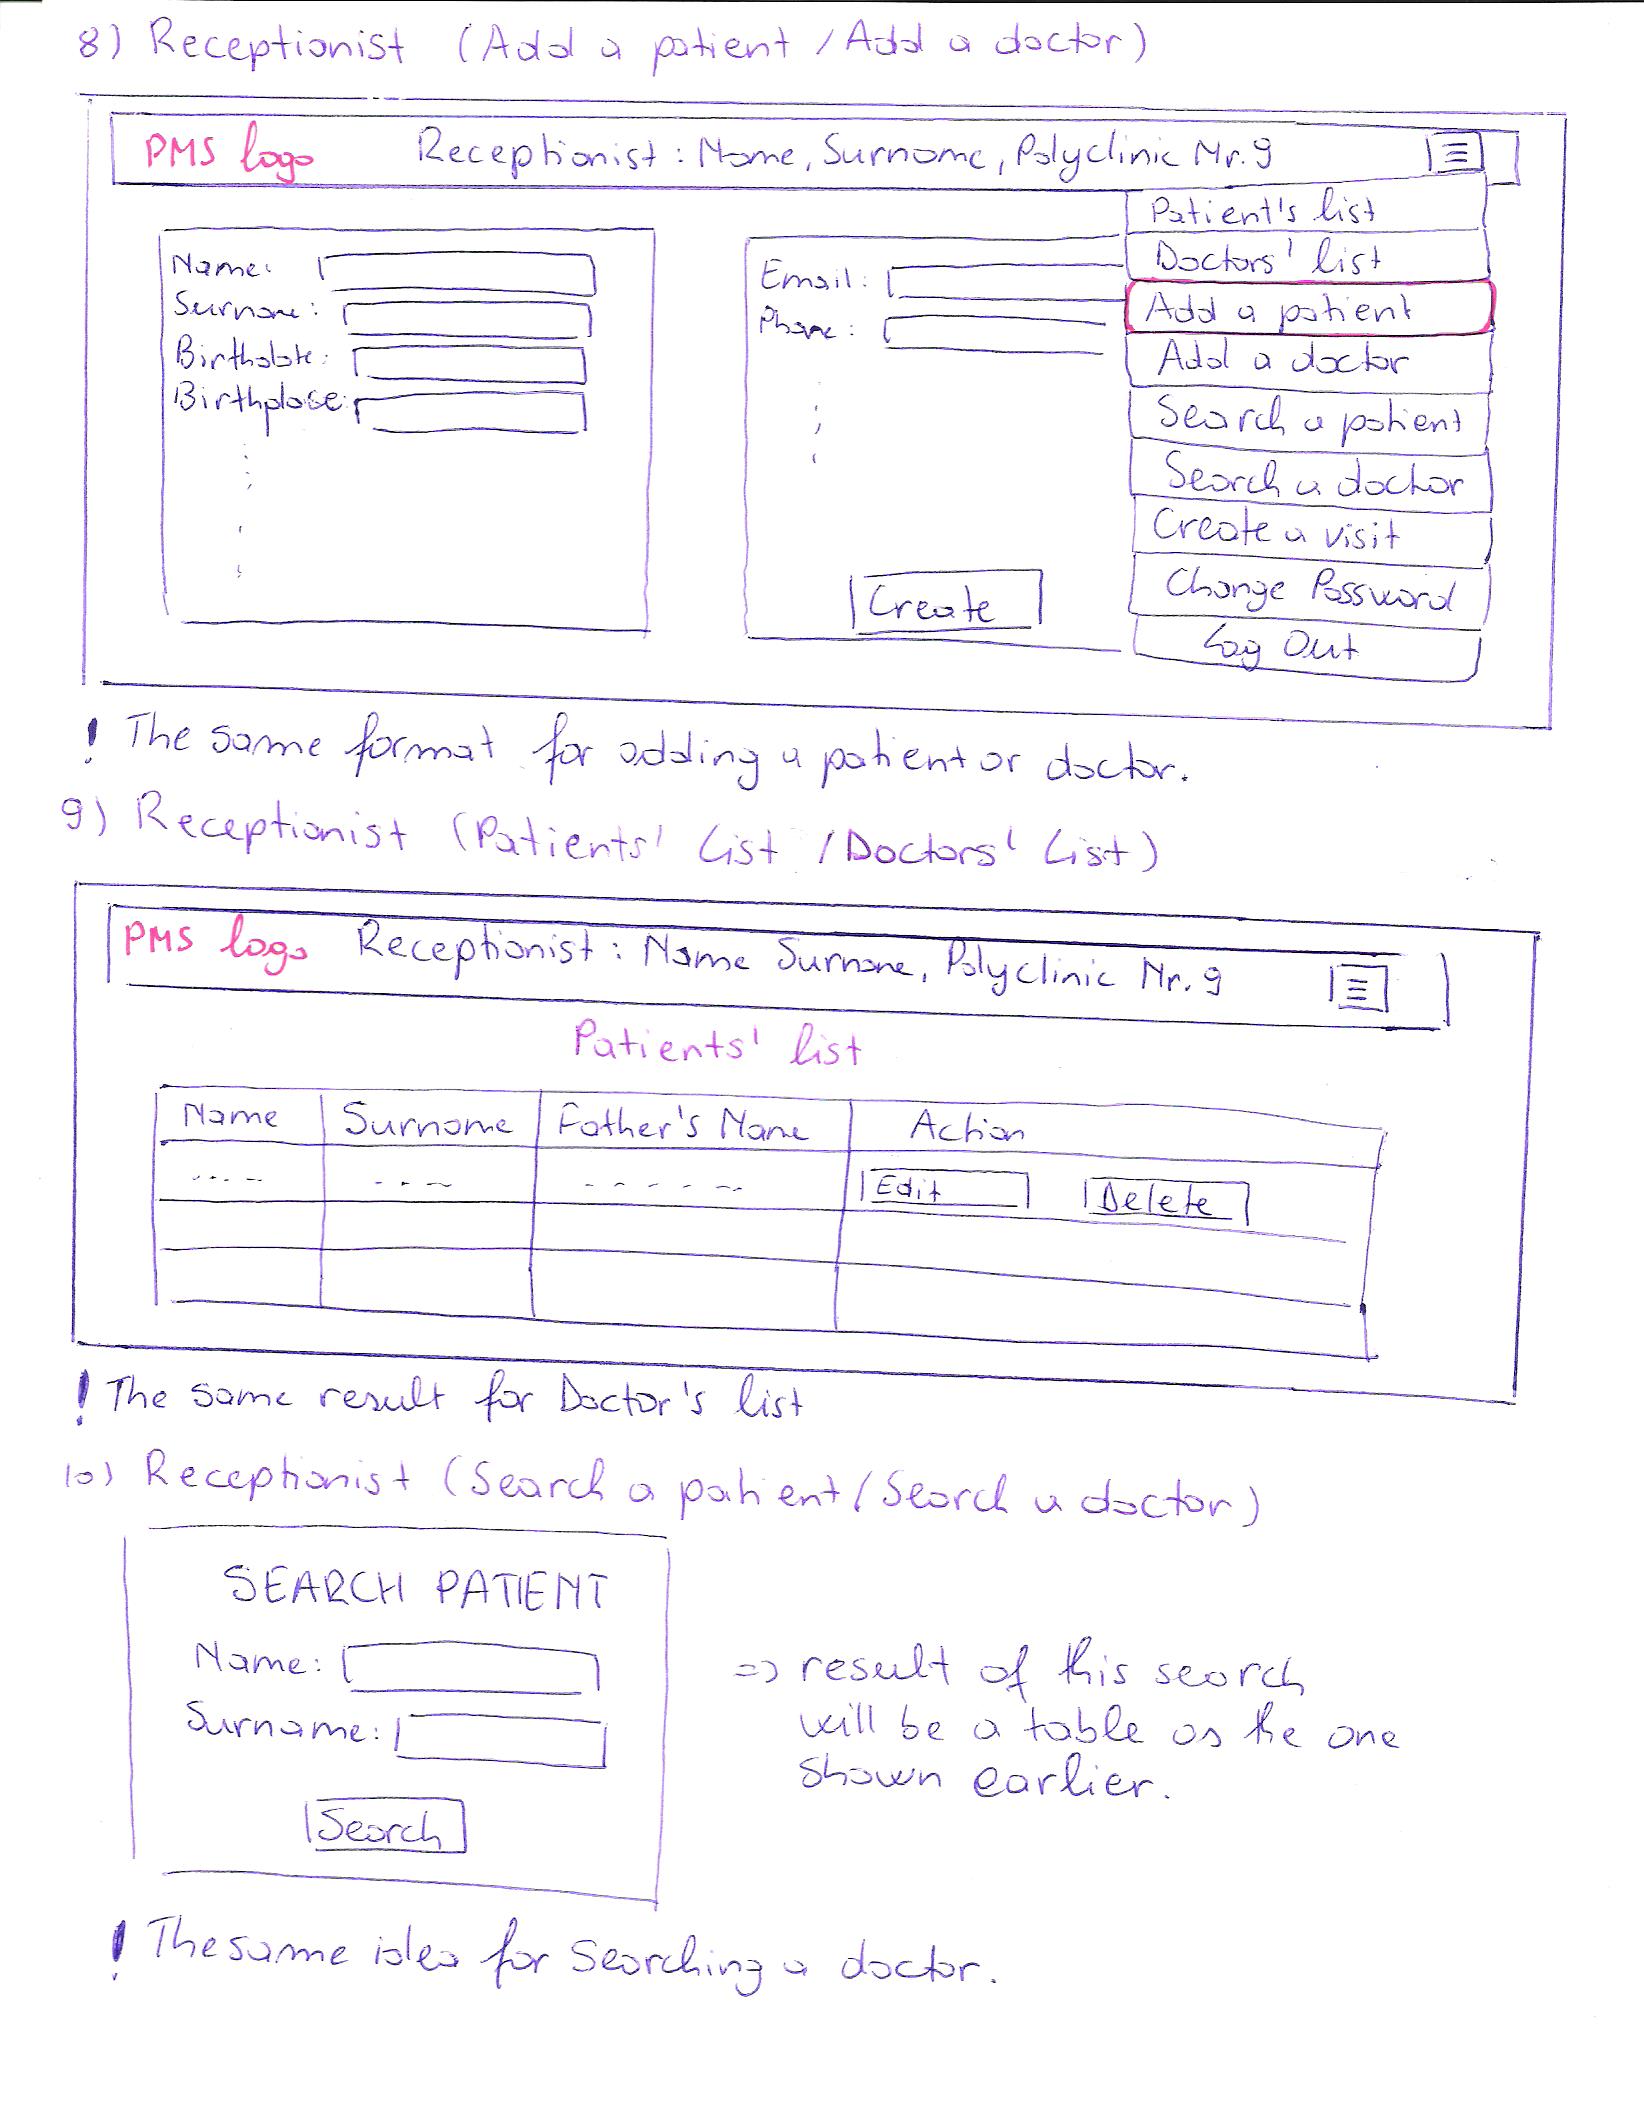 8) Receptionist (Add a patient / Add a doctor)
PMS logo Receptionist: Name, Surname, Polyclinic Nr. 9
Patient's list
Doctors' list
Add a patient
Add a doctor
Search a patient
Search a doctor
Create a visit
Change Password
Log Out
Name:
Surname:
Birthdate:
Birthplace:
Email:
Phone:
Create
! The same format for adding a patient or doctor.
9) Receptionist (Patients' List / Doctors' List)
PMS logo Receptionist: Name Surname, Polyclinic Nr. 9
Patients' list
Name Surname Father's Name Action
Edit Delete
! The same result for Doctor's list
10) Receptionist (Search a patient / Search a doctor)
SEARCH PATIENT
Name:
Surname:
Search
=> result of this search
will be a table as the one
shown earlier.
! The same idea for searching a doctor.